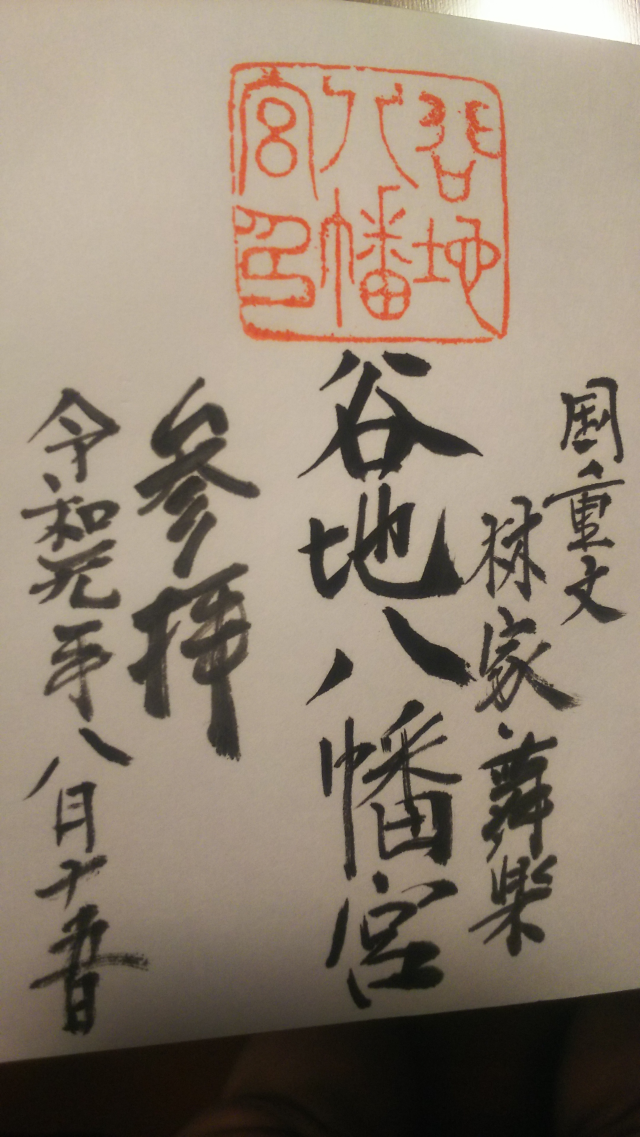 谷地
八幡
宮印
国重文
林家舞楽
谷地八幡宮
参拝
令和元年八月十五日